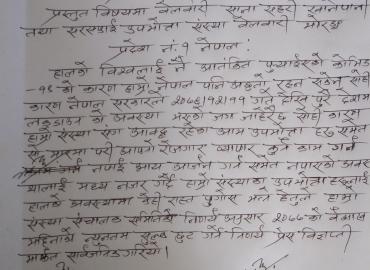 प्रस्तुत विषयमा बेलबारी साना सहरी खानेपानी
तथा सरसफाई उपभोक्ता संस्था बेलबारी मोरङ
प्रदेश नं. १ नेपाल।
हालको विश्वलाई नै आतंकित पुर्‍याईरहेको कोभिड
-१९ को कारण हाम्रो नेपाल पनि अछुतो रहन सकेन सोही
कारण नेपाल सरकारले २०७६/१२/११ गते देखि पुरै देशमा
लकडाउन को अवस्था भएको जग जाहेर छ सोही क्रममा
हाम्रो संस्था संग आवद्ध रहेका आम उपभोक्ता हरु समेत
मारमा परी आफ्नो रोजगार व्यापार कुनै काम गर्न
नपाई आय आर्जन गर्न समेत नपाएको अवस्
थालाई मध्य नजर गर्दै हाम्रो संस्थाका उपभोक्ता हरुलाई
हालको अवस्थामा केही राहत पुगोस भन्ने हेतुले हाम्रो
संस्था संचालक समितिको निर्णय अनुसार २०७७ को बैशाख
महिनाको न्यूनतम शुल्क छुट गर्ने निर्णय प्रेस विज्ञप्ती
मार्फत सार्वजनिक गरियो।